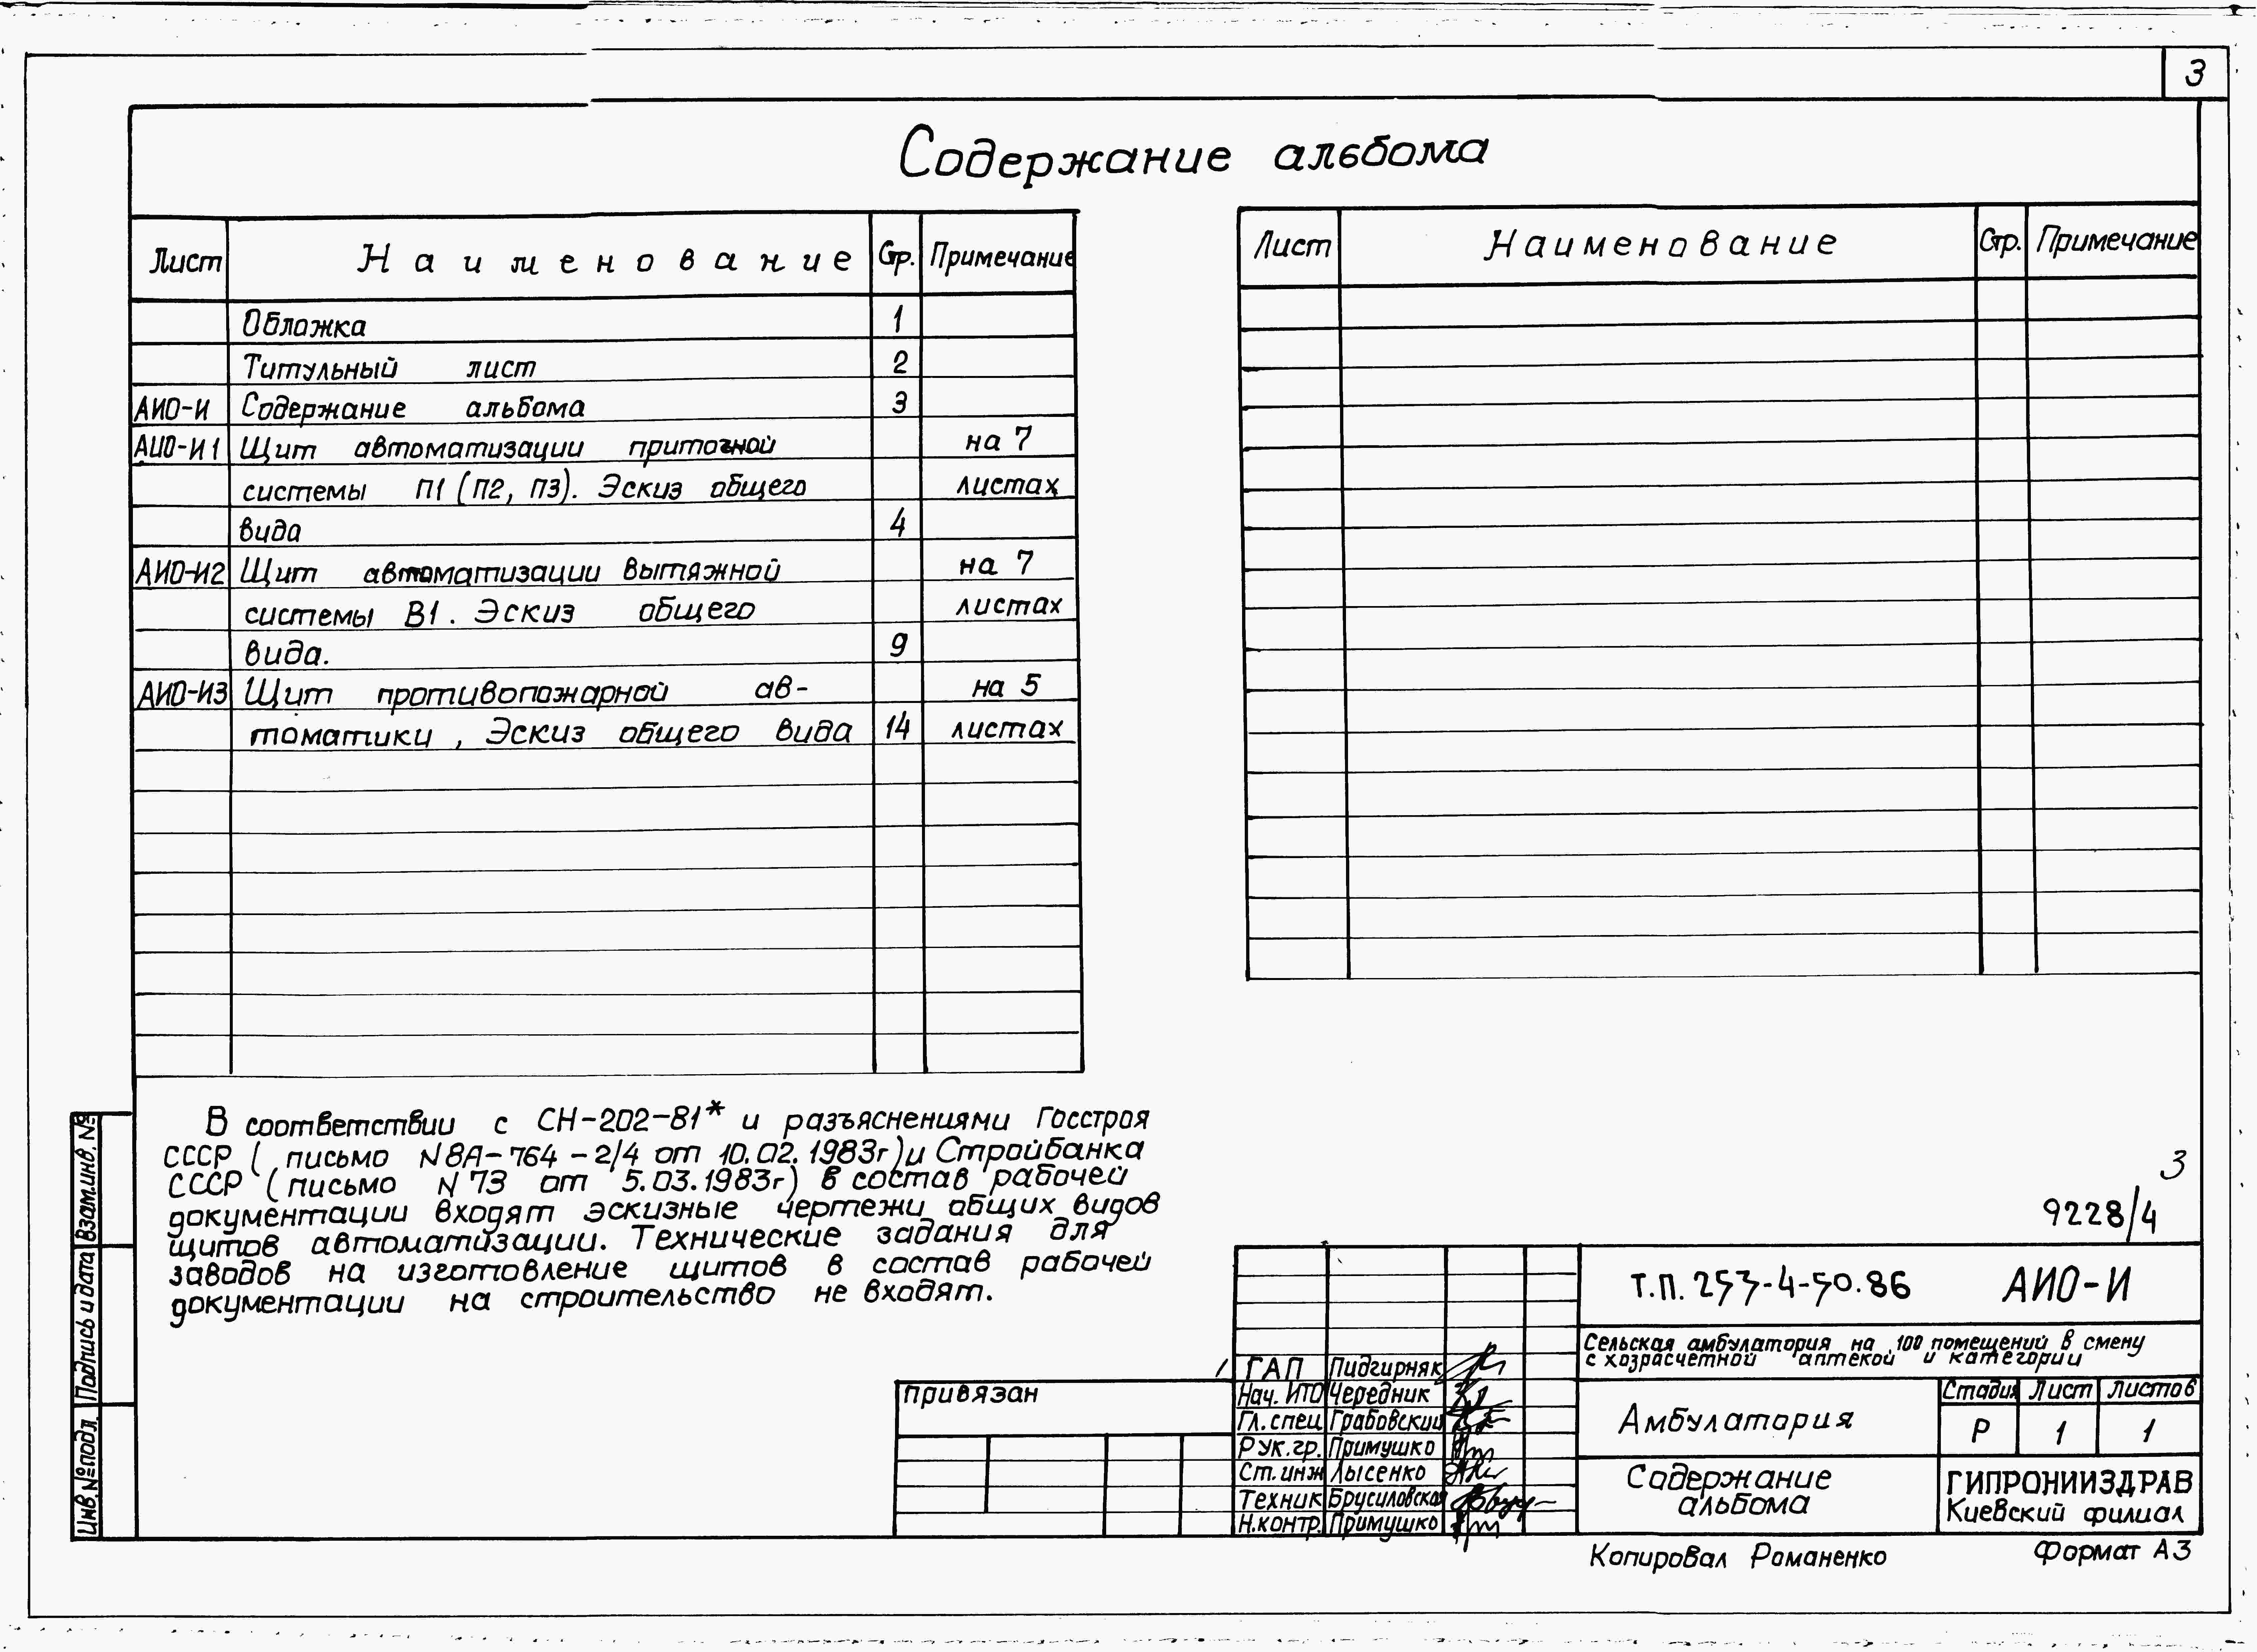 3
Содержание альбома
Лист Наименование Стр. Примечание
Обложка 1
Титульный лист 2
АИО-И Содержание альбома 3
АИО-И1 Щит автоматизации приточной на 7
системы П1 (П2, П3). Эскиз общего листах
вида 4
АИО-И2 Щит автоматизации вытяжной на 7
системы В1. Эскиз общего листах
вида. 9
АИО-И3 Щит противопожарной ав- на 5
томатики, Эскиз общего вида 14 листах
Лист Наименование Стр. Примечание
В соответствии с СН-202-81* и разъяснениями Госстроя
СССР ( письмо N8А-764-2/4 от 10.02.1983г) и Стройбанка
СССР ( письмо N73 от 5.03.1983г) в состав рабочей
документации входят эскизные чертежи общих видов
щитов автоматизации. Технические задания для
заводов на изготовление щитов в состав рабочей
документации на строительство не входят.
3
9228/4
Взам.инв.№
Подпись и дата
Инв.№подл.
привязан
ГАП Пидгирняк
Нач. ИТО Чередник
Гл. спец Грабовский
Рук.гр. Примушко
Ст. инж Лысенко
Техник Брусиловская
Н.контр. Примушко
Т.П. 253-4-50.86 АИО-И
Сельская амбулатория на 100 помещений в смену
с хозрасчетной аптекой и категории
Амбулатория
Стадия Лист Листов
Р 1 1
Содержание
альбома
ГИПРОНИИЗДРАВ
Киевский филиал
Копировал Романенко Формат А3